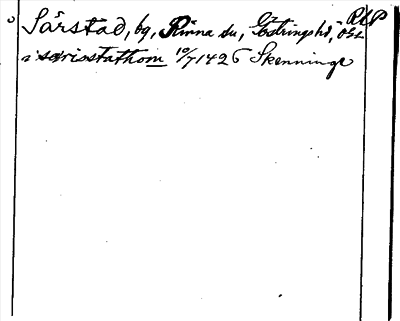 RAP
Sårstad, by, Rinna sn, Göstringshd, Ögl.
i særisstathom 10/7 1426 Skenninge